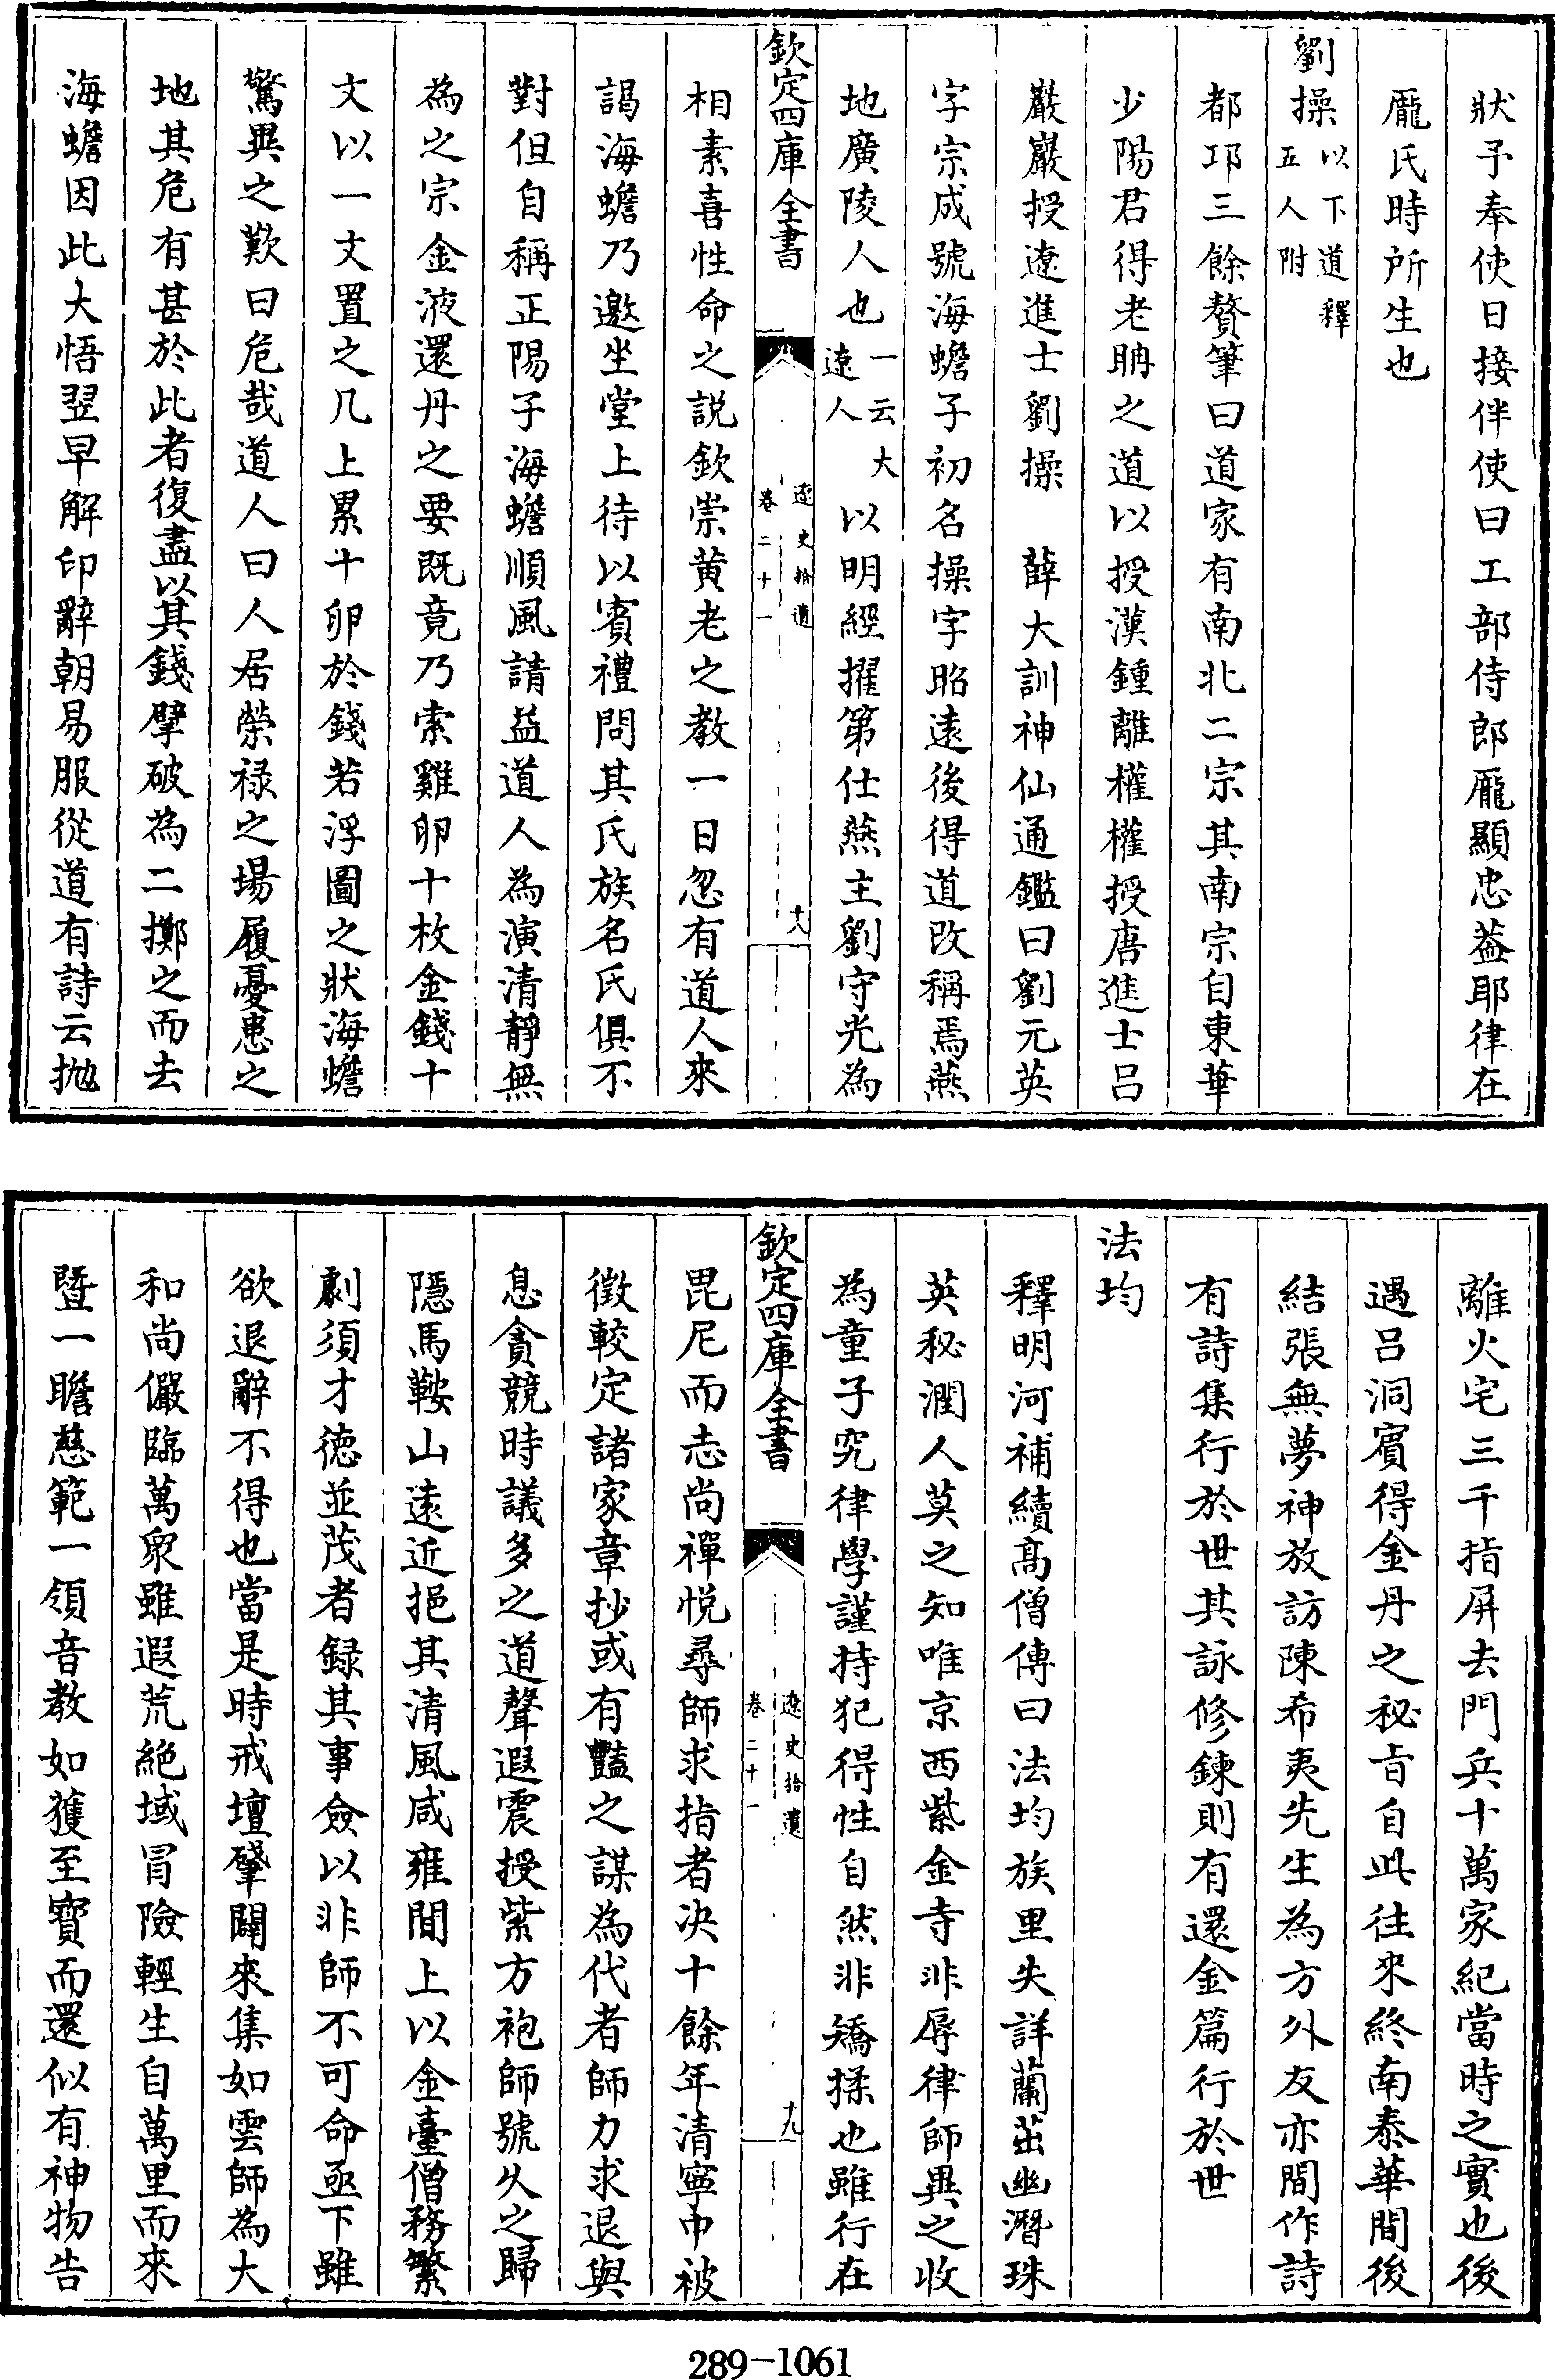 狀予奉使日接伴使曰工部侍郎龎顯忠葢耶律在
龎氏時所生也
劉操以下道釋五人附
都卭三餘贅筆曰道家有南北二宗其南宗自東華
少陽君得老聃之道以授漢鍾離權權授唐進士吕
巖巖授遼進士劉操　薛大訓神仙通鑑曰劉元英
字宗成號海蟾子初名操字昭遠後得道改稱焉燕
地廣陵人也一云大遼人以明經擢第仕燕主劉守光為
欽定四庫全書
遼史拾遺
卷二十一
十八
相素喜性命之説欽崇黄老之教一日忽有道人來
謁海蟾乃邀坐堂上待以賓禮問其氏族名氏俱不
對但自稱正陽子海蟾順風請益道人為演清靜無
為之宗金液還丹之要既竟乃索雞卵十枚金錢十
文以一文置之几上累十卵於錢若浮圖之狀海蟾
驚異之歎曰危哉道人曰人居榮禄之場履憂患之
地其危有甚於此者復盡以其錢擘破為二擲之而去
海蟾因此大悟翌早解印辭朝易服從道有詩云抛
離火宅三千指屏去門兵十萬家紀當時之實也後
遇吕洞賓得金丹之秘㫖自此往來終南泰華間後
結張無夢神放訪陳希夷先生為方外友亦間作詩
有詩集行於世其詠修鍊則有還金篇行於世
法均
釋明河補續高僧傳曰法均族里失詳蘭茁幽潛珠
英秘潤人莫之知唯京西紫金寺非辱律師異之收
為童子究律學謹持犯得性自然非矯揉也雖行在
欽定四庫全書
遼史拾遺
卷二十一
十九
毘尼而志尚禪悦尋師求指者决十餘年清寧中被
徵較定諸家章抄或有豔之謀為代者師力求退與
息貪競時議多之道聲遐震授紫方袍師號乆之歸
隱馬鞍山遠近挹其清風咸雍間上以金臺僧務繁
劇須才徳並茂者録其事僉以非師不可命亟下雖
欲退辭不得也當是時戒壇肇闢來集如雲師為大
和尚儼臨萬衆雖遐荒絶域冒險輕生自萬里而來
暨一瞻慈範一領音教如獲至寶而還似有神物告
289-1061